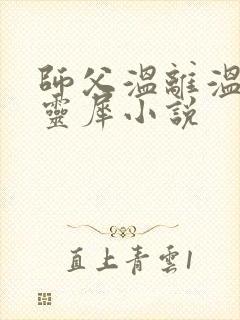 師父溫離溫
靈犀小說
直上青雲1